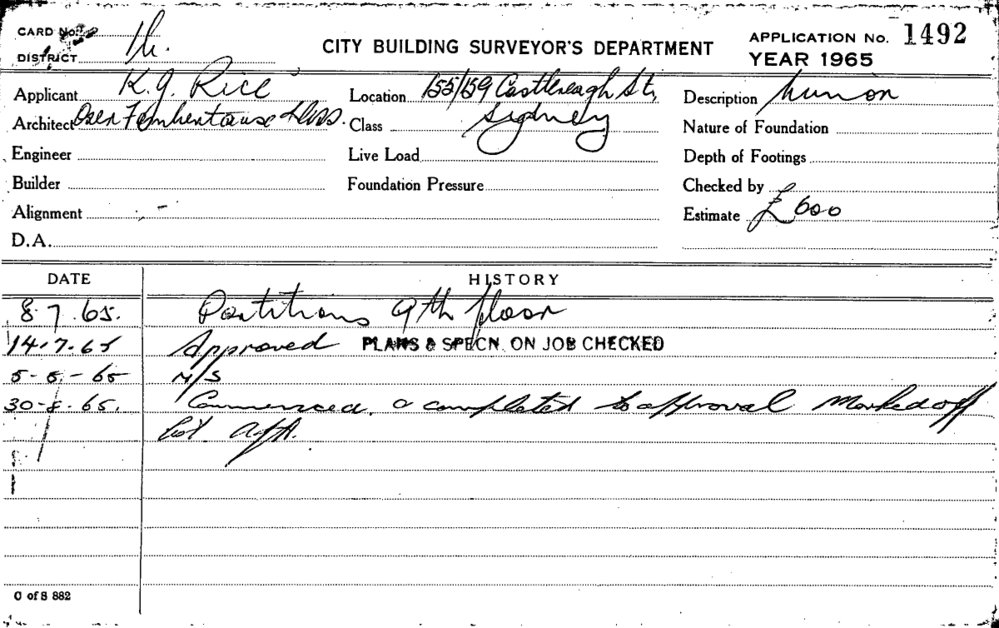 CARD No.
DISTRICT
CITY BUILDING SURVEYOR'S DEPARTMENT
APPLICATION No. 1492
YEAR 1965
Applicant K. J. Rice
Location 155/159 Castlereagh St,
Sydney
Description
Architect
Class
Nature of Foundation
Engineer
Live Load
Depth of Footings
Builder
Foundation Pressure
Checked by
Alignment
Estimate £600
D.A.
DATE HISTORY
8.7.65. Partitions 9th floor
14.7.65 Approved PLANS & SPECN. ON JOB CHECKED
5-8-65 N/S
30-8-65. Commenced & completed to approval Marked off
C of S 882